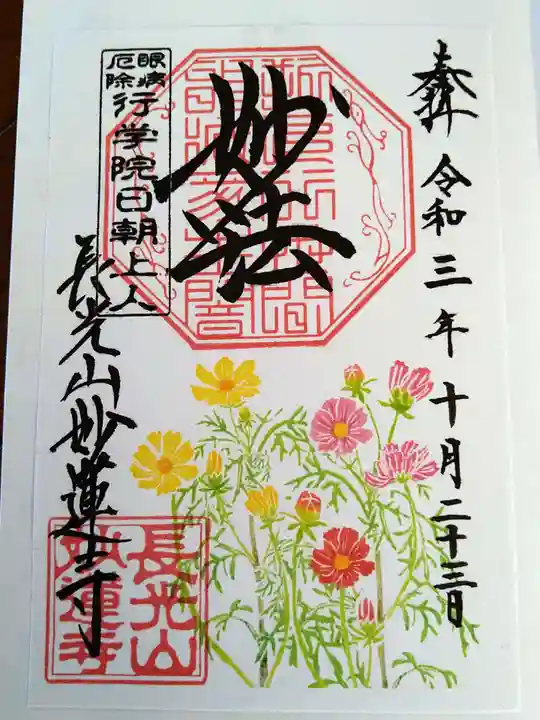 奉拝
令和三年十月二十三日
妙法
眼病
厄除
行学院日朝上人
長光山妙蓮寺
長光山
妙蓮寺